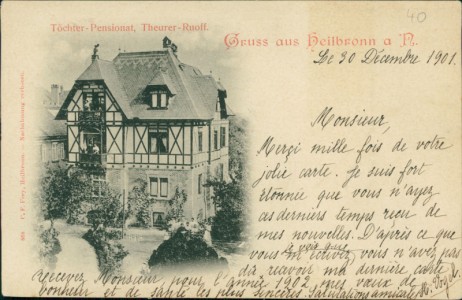 40
Töchter-Pensionat, Theurer-Ruoff.
Gruss aus Heilbronn a N.
Le 30 Décembre 1901.
Monsieur,
Merçi mille fois de votre
jolie carte. Je suis fort
étonnée que vous n'ayez
ces derniers temps reçu de
mes nouvelles. D'après ce que
vous m'écrivez vous n'avez pas
dû recevoir ma dernière carte
Recevez Monsieur pour l'année 1902 mes vœux de
bonheur et de santé les plus sincères. Salutations amicales
Heilbronn. Nachahmung verboten.